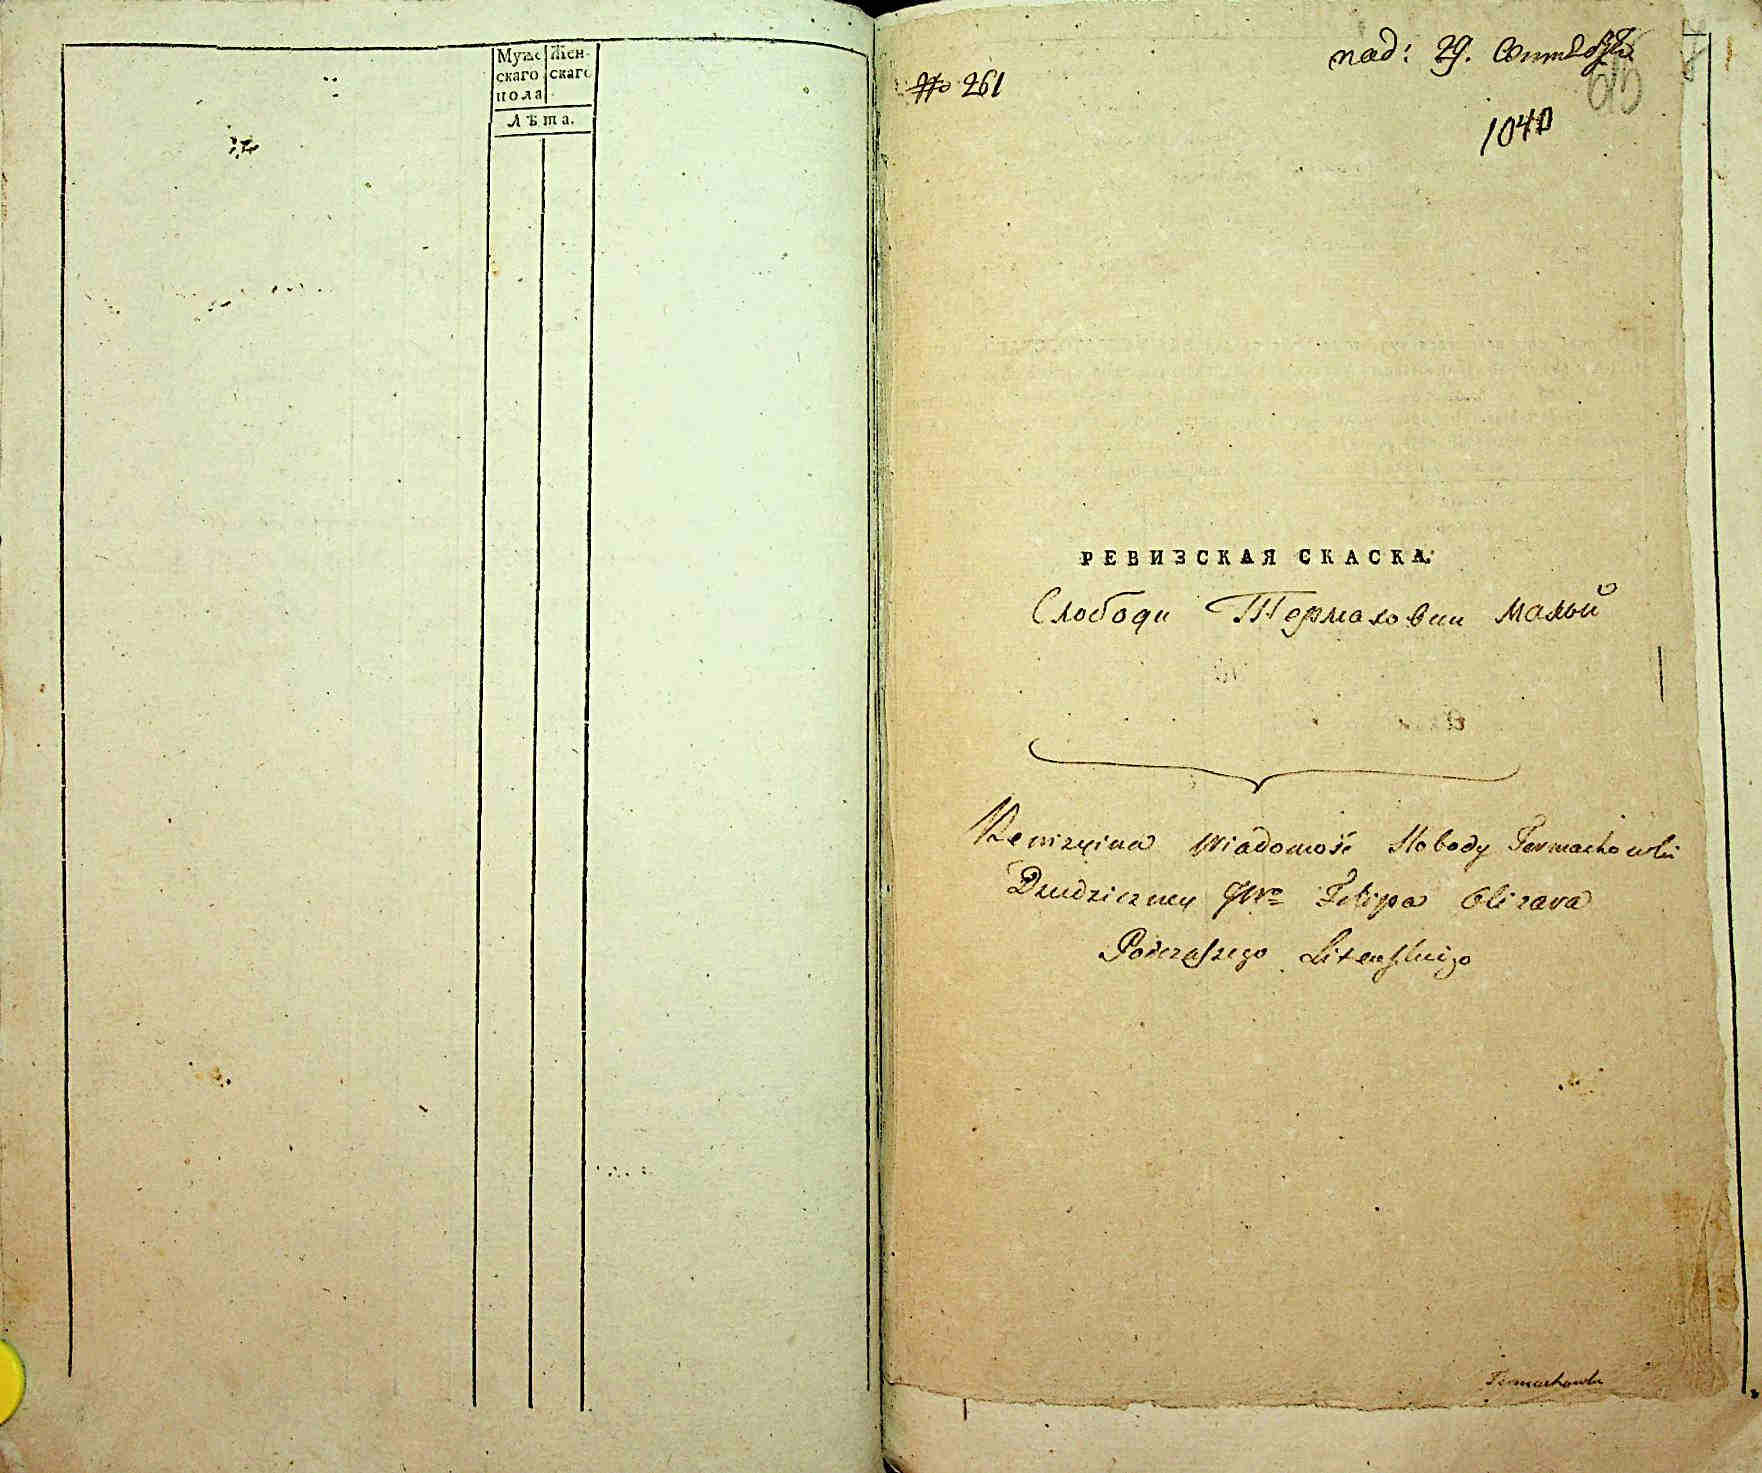 Муже Жен-
скаго скаго
пола
Лѣта.
№ 261
под: 29. Сентебр
619
1040
РЕВИЗСКАЯ СКАСКА.
Слободи Термаховки малой
Rewizyina Wiadomość Słobody Termachowki
Dziedziczney JWo Filipa Olizara
Podczaszego Litewskiego
Termachowka